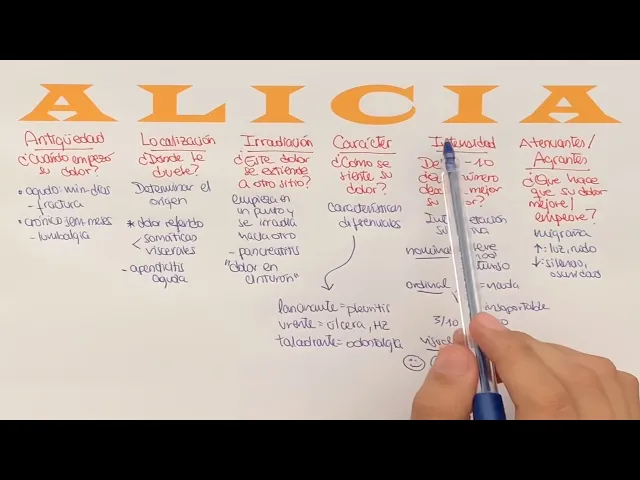 ALICIA
Antigüedad
¿Cuándo empezó
su dolor?
• agudo: min-días
- fractura
• crónico: sem-meses
- lumbalgia
Localización
¿Dónde le
duele?
Determinar el
origen
* dolor referido
< somáticas
viscerales
- apendicitis
aguda
Irradiación
¿Este dolor
se extiende
a otro sitio?
empieza en
un punto y
se irradia
hacia otro
- pancreatitis
"dolor en
cinturón"
Carácter
¿Cómo se
siente su
dolor?
Características
diferenciales
lancinante = pleuritis
urente = úlcera, HZ
taladrante = odontalgia
Intensidad
-10
número
mejor
su
nominal
ordinal = nada
insoportable
3/10
Atenuantes/
Agravantes
¿Qué hace
que su dolor
mejore/
empeore?
migraña
↑: luz, ruido
↓: silencio,
oscuridad